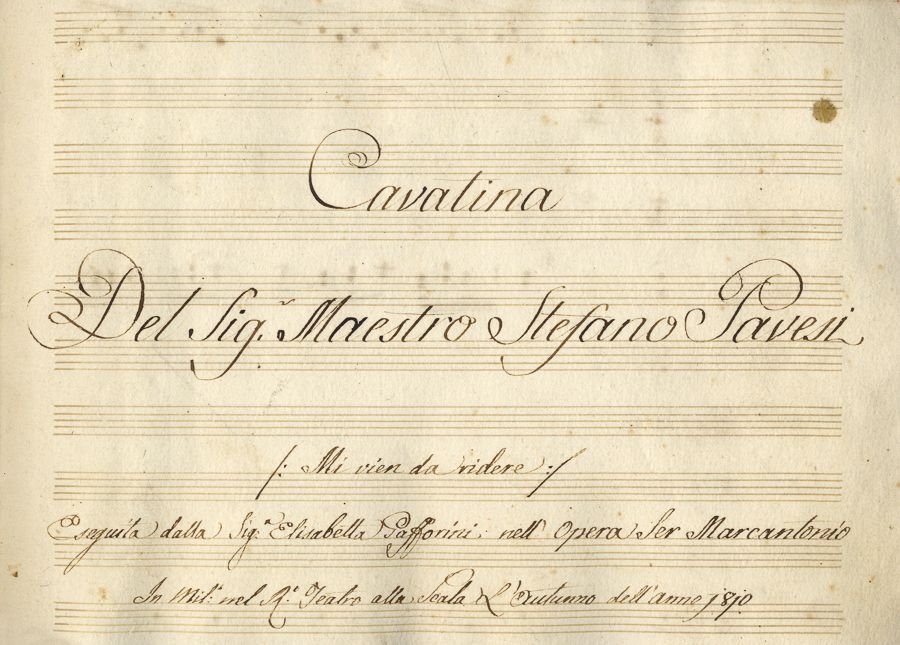 Cavatina
Del Sig.r Maestro Stefano Pavesi
/: Mi vien da ridere :/
Eseguita dalla Sig.a Elisabetta Gafforini, nell' Opera Ser Marcantonio
In Mil.o nel R.o Teatro alla Scala L'Autunno dell'anno 1810